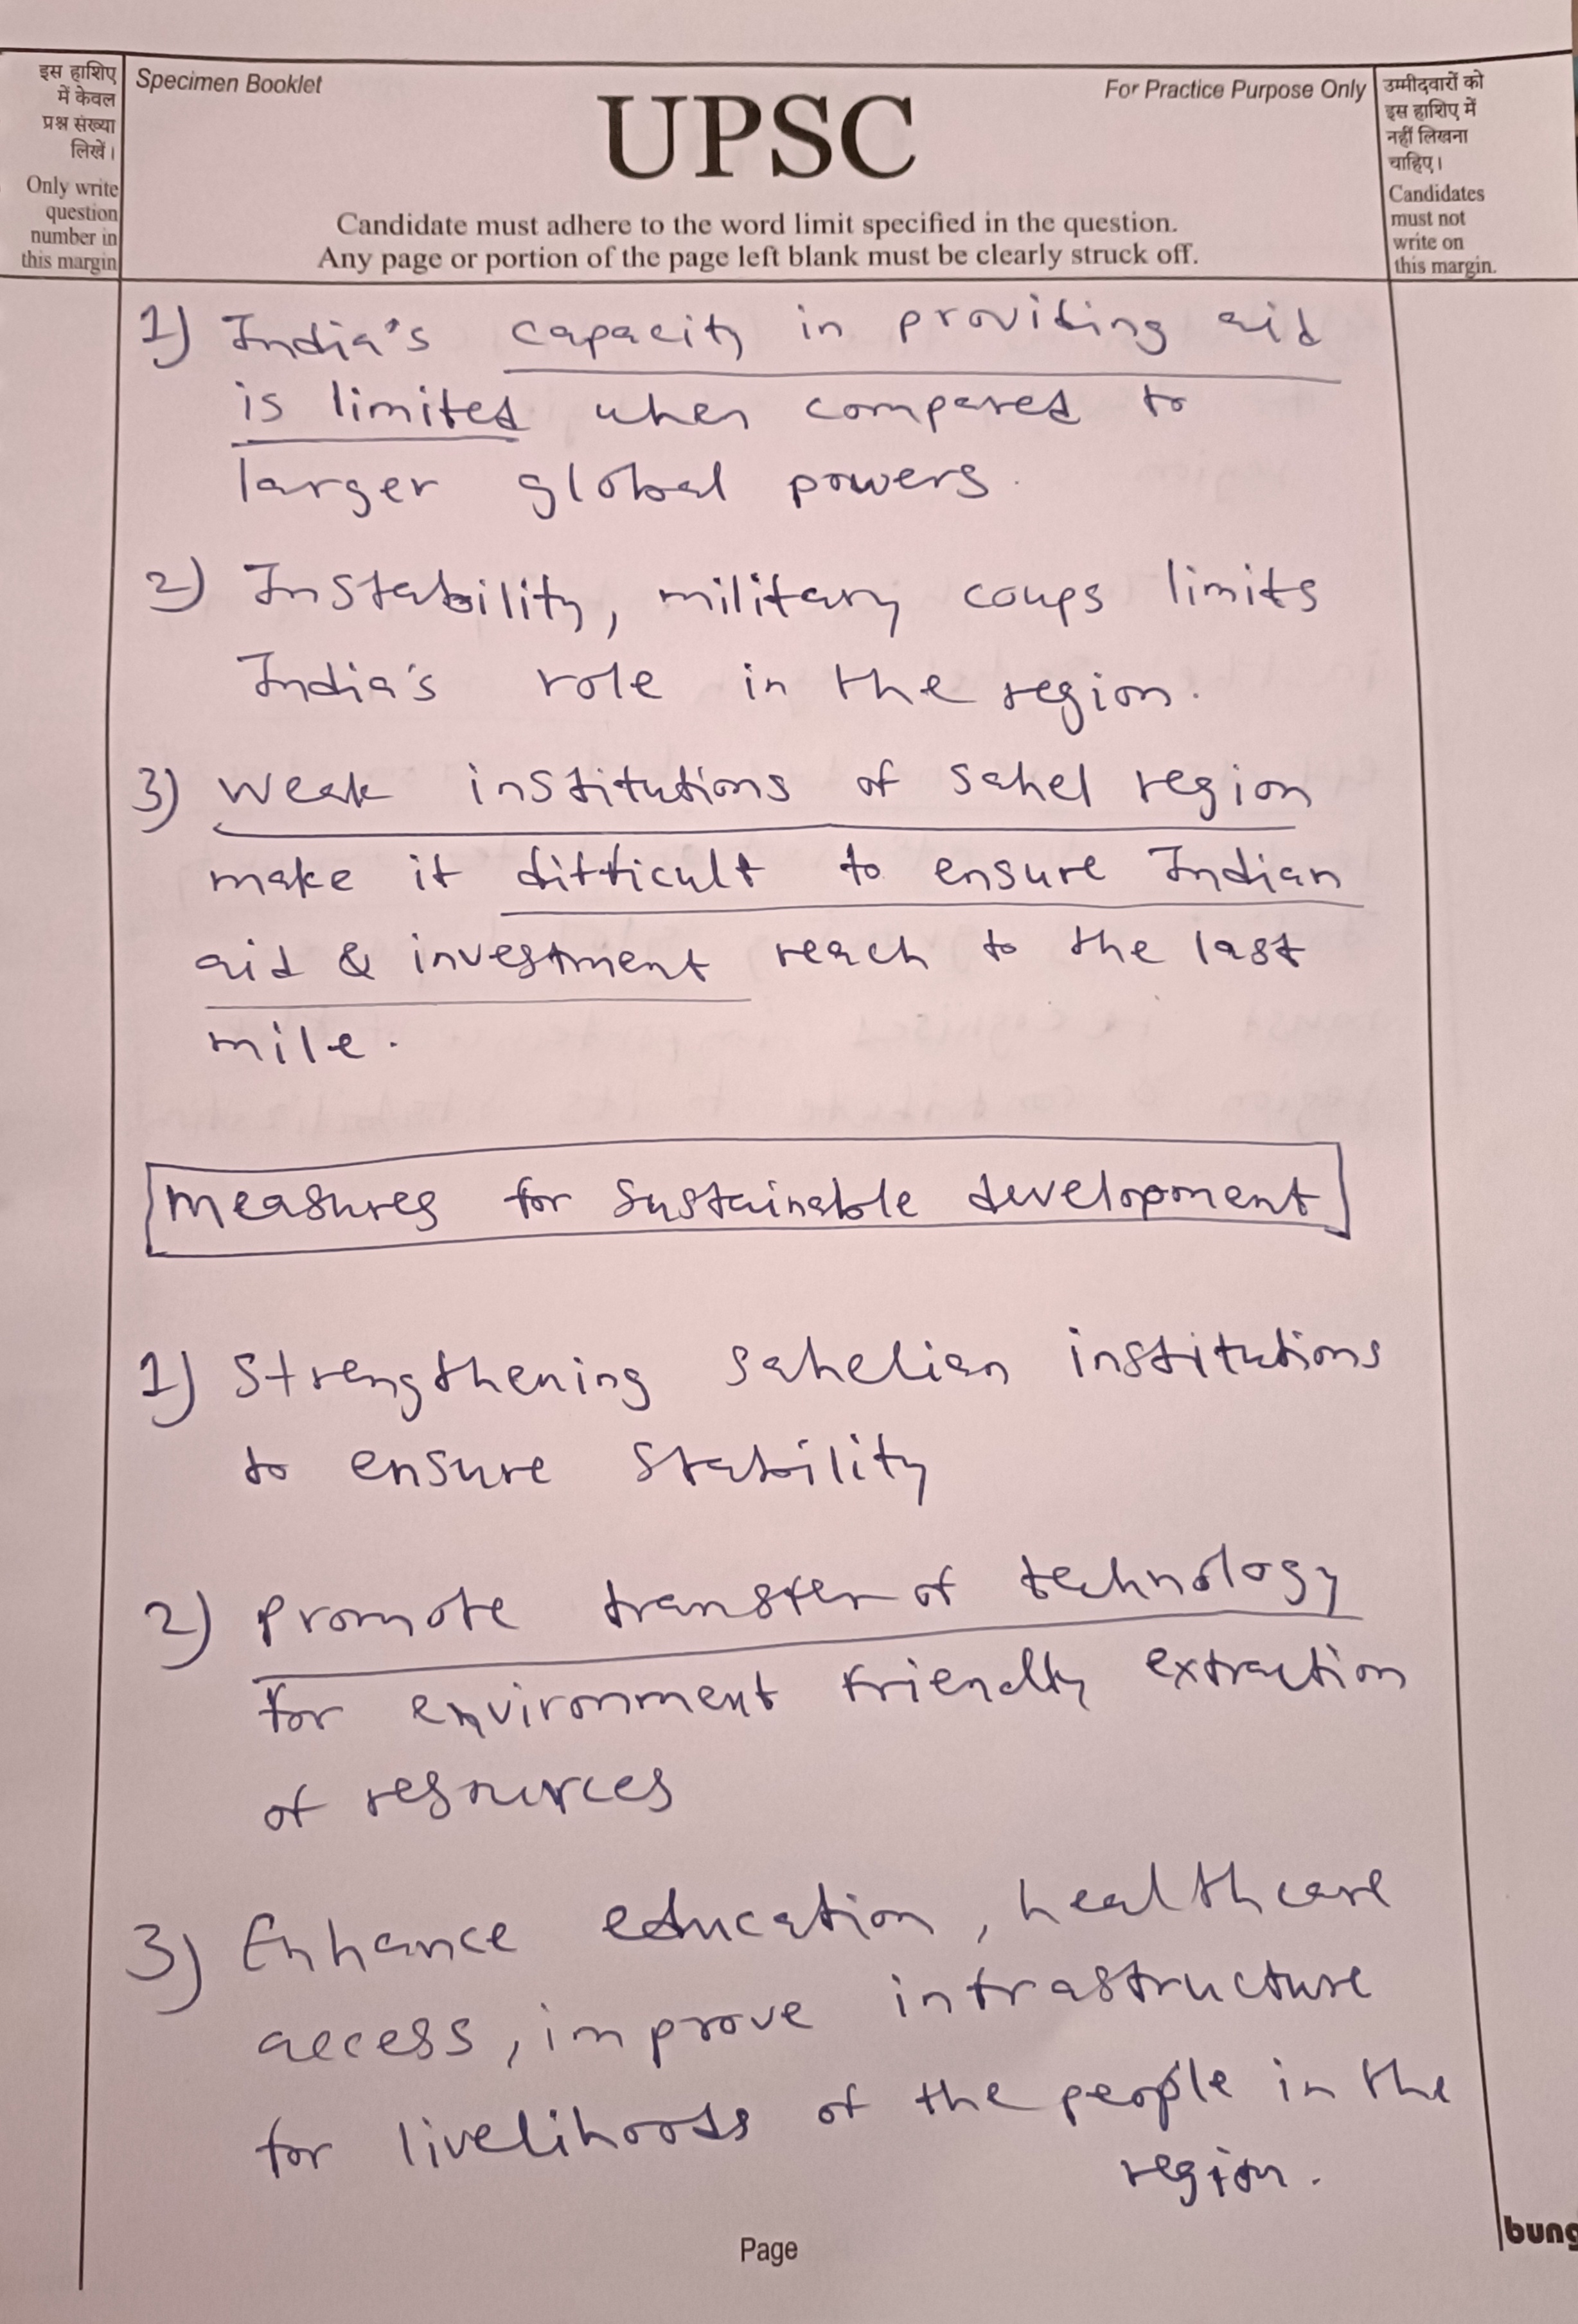 इस हाशिए
में केवल
प्रश्न संख्या
लिखें।
Only write
question
number in
this margin
Specimen Booklet
For Practice Purpose Only
UPSC
Candidate must adhere to the word limit specified in the question.
Any page or portion of the page left blank must be clearly struck off.
उम्मीदवारों को
इस हाशिए में
नहीं लिखना
चाहिए।
Candidates
must not
write on
this margin.
1) India's capacity in providing aid
is limited when compared to
larger global powers.
2) Instability, military coups limits
India's role in the region.
3) Weak institutions of Sahel region
make it difficult to ensure Indian
aid & investment reach to the last
mile.
Measures for sustainable development
1) Strengthening Sahelian institutions
to ensure stability
2) Promote transfer of technology
for environment friendly extraction
of resources
3) Enhance education, healthcare
access, improve infrastructure
for livelihoods of the people in the
region.
Page
bung